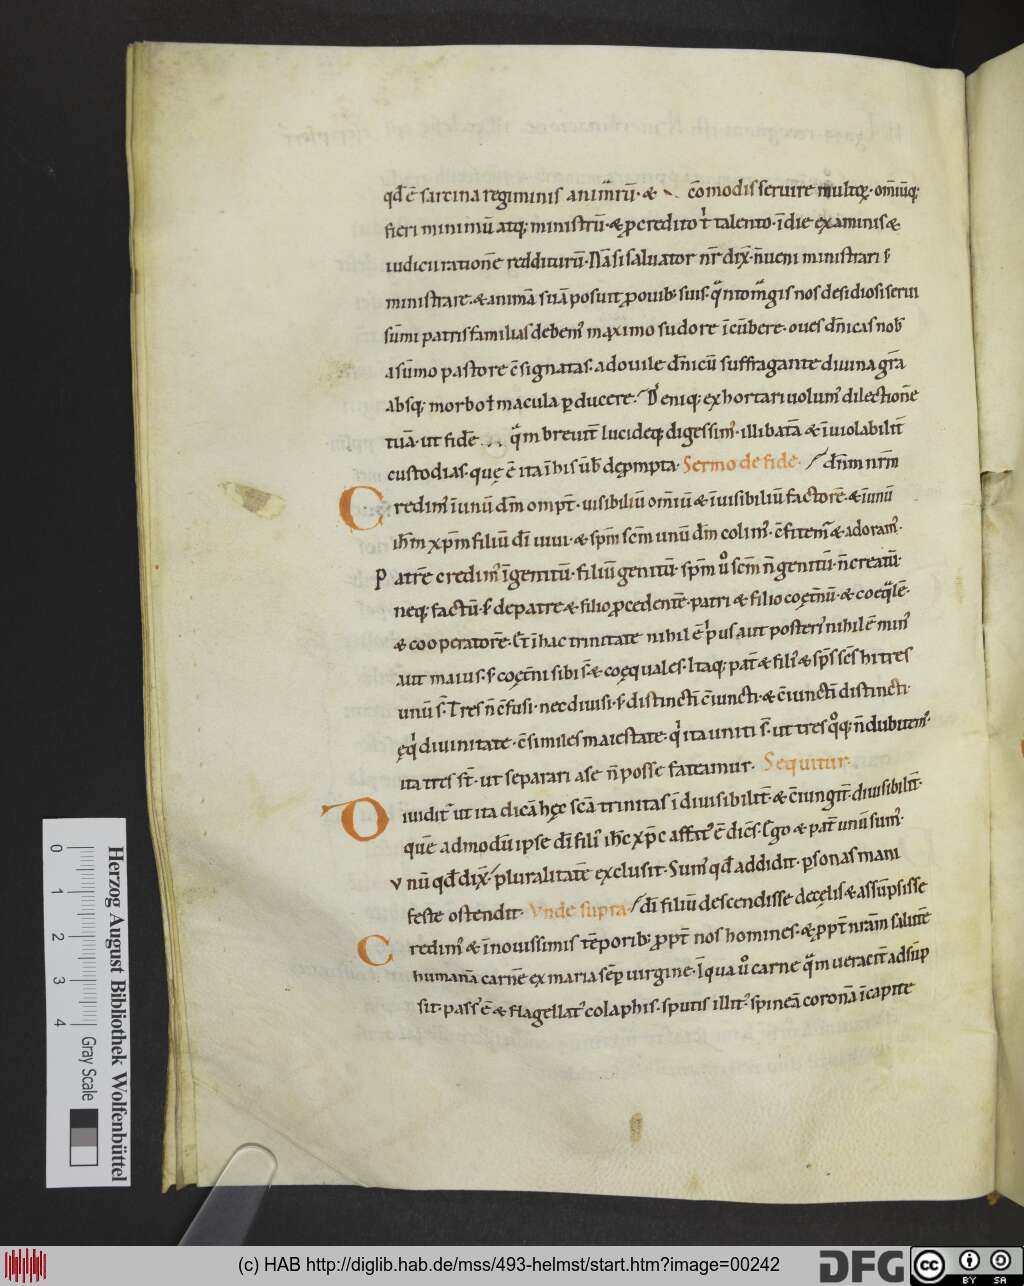 qđ ē sarcina regiminis animarū · & cōmodis seruire multorꝫ · omīuqꝫ
fieri minimū atqꝫ ministrū · & ꝓ credito talento · ī die examinis &
iudicii rationē redditurū · Nā si saluator nr̄ dix̄ · n̄ ueni ministrari s̄
ministrare · & animā suā posuit ꝓ ouibꝫ suis · nos desidiosi serui
sūmi patris familias debem᷒ maximo sudore īcūbere · oues dn̄icas nob̄
a sūmo pastore c̄signatas · ad ouile dn̄icū suffragante diuina gr̄a
absqꝫ morbo ł macula ꝑducere · Deniqꝫ exhortari uolum᷒ dilectionē
tuā · ut fidē quā breuit̄ lucideqꝫ digessim᷒ · illibatā & īuiolabilit̄
custodias · quę ē ita ī his ūb̄ dep̄mpta · Sermo de fide · / dn̄m nr̄m
Credim᷒ ī unū dm̄ ompt̄ · uisibiliū omīu & īuisibiliū factorē · & ī unū
ih̄m xp̄m filiū dī uiui · & sp̄m sc̄m unū dm̄ colim᷒ · c̄fitem᷒ & adoram᷒ ·
Patrē credim᷒ īgenitū · filiū genitū · sp̄m ů sc̄m n̄ genitū · n̄ creatū ·
neqꝫ factū · s̄ de patre & filio ꝓcedentē · patri & filio coęt̄nū · & coeq̄lē ·
& cooperatorē · Et ī hac trinitate nihil ē pⁱus aut posteri᷒ nihil ē min᷒
aut maius · s̄ coęt̄ni sibi s̄ & coęquales · Itaqꝫ pat̄ & fili᷒ & sp̄s sc̄s hi tres
unū s̄ · Tres n̄ c̄fusi · nec diuisi · s̄ distincti c̄iuncti · & c̄iuncti distincti ·
ęqⁱ diuinitate · c̄similes maiestate · qⁱ ita uniti s̄ · ut tres qͦqꝫ n̄ dubitem᷒ ·
ita tres st̄ · ut separari a se n̄ posse fateamur · Sequitur ·
Diuidit᷒ ut ita dicā hęc sc̄a trinitas īdiuisibilit̄ · & c̄iungit᷒ diuisibilit̄ ·
quē admodū ipse dī fili᷒ ih̄c xp̄c affat᷒ ē dic̄s · Ego & pat̄ unū sum᷒ ·
Vnū qđ dix̄ / pluralitatē exclusit · Sum᷒ qđ addidit · ꝑsonas mani
feste ostendit · Vnde supra · / dī filiū descendisse de cęlis & assūpsisse
Credim᷒ & ī nouissimis tēporibꝫ ꝓpt̄ nos homines · & ꝓpt̄ nr̄am salutē
humanā carnē ex maria sēꝑ uirgine · ī qua ů carne quā ueracit̄ adsūp
sit · pass᷒ ē & flagellat᷒ colaphis · sputis illit᷒ · spineā coronā ī capite
Herzog August Bibliothek Wolfenbüttel
0 1 2 3 4
Gray Scale
(c) HAB http://diglib.hab.de/mss/493-helmst/start.htm?image=00242
DFG
cc BY SA